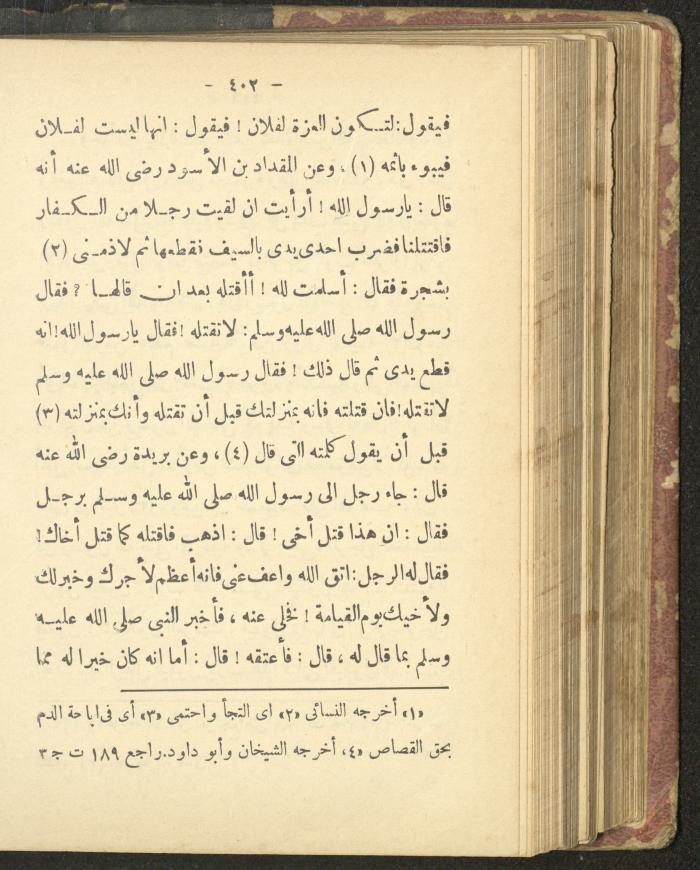 - ٤٠٢ -
فيقول: لتكون العزة لفلان ! فيقول : انها ليست لفلان
فيبوء باثمه (١) ، وعن المقداد بن الأسود رضى الله عنه أنه
قال : يارسول الله ! أرأيت ان لقيت رجلا من الكفار
فاقتتلنا فضرب احدى يدى بالسيف نقطعها ثم لاذ منى (٢)
بشجرة فقال : أسلمت لله ! أأقتله بعد ان قالها ؟ فقال
رسول الله صلى الله عليه وسلم : لاتقتله ! فقال يارسول الله ! انه
قطع يدى ثم قال ذلك ! فقال رسول الله صلى الله عليه وسلم
لاتقتله ! فان قتلته فانه بمنزلتك قبل أن تقتله وأنك بمنزلته (٣)
قبل أن يقول كلمته التى قال (٤) ، وعن بريدة رضى الله عنه
قال : جاء رجل الى رسول الله صلى الله عليه وسلم برجل
فقال : ان هذا قتل أخى ! قال : اذهب فاقتله كما قتل أخاك !
فقال له الرجل : اتق الله واعف عنى فانه أعظم لأجرك وخير لك
ولأخيك يوم القيامة ! فخلى عنه ، فأخبر النبى صلى الله عليه
وسلم بما قال له ، قال : فأعتقه ! قال : أما انه كان خيرا له مما
«١» أخرجه النسائى «٢» اى التجأ واحتمى «٣» أى فى اباحة الدم
بحق القصاص «٤» أخرجه الشيخان وأبو داود. راجع ١٨٩ ت ج ٣